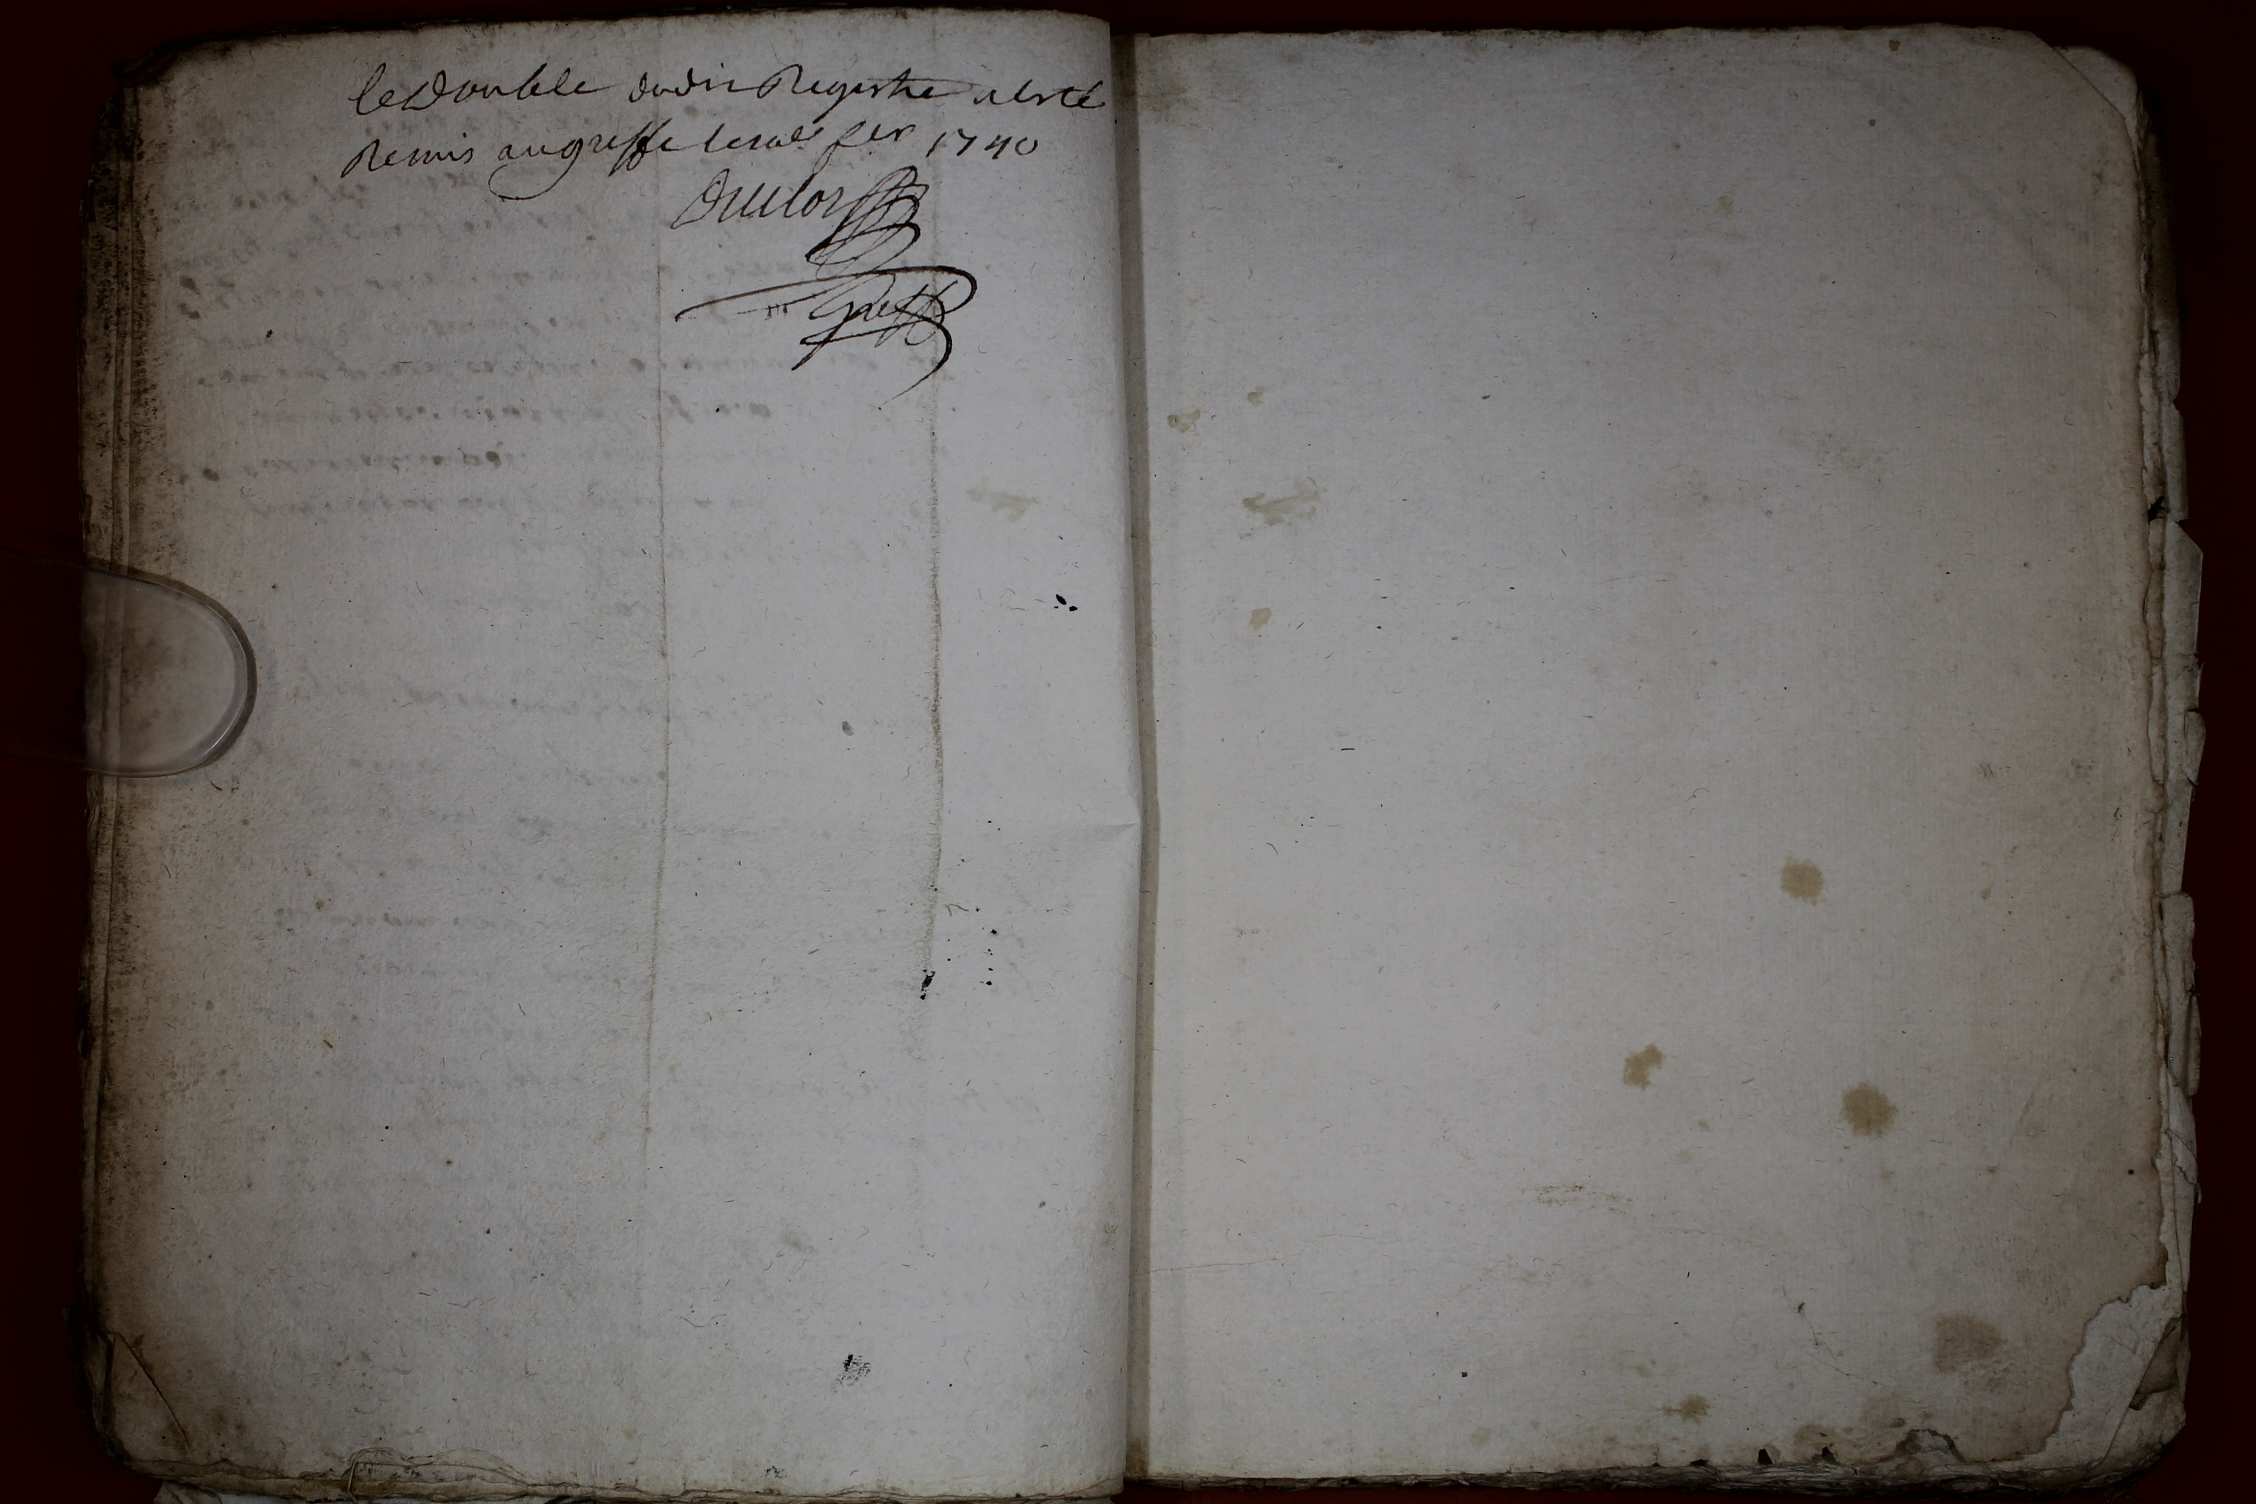 le Double dudit Registre a Esté
Remis au greffe le 1740
Duclos
greff